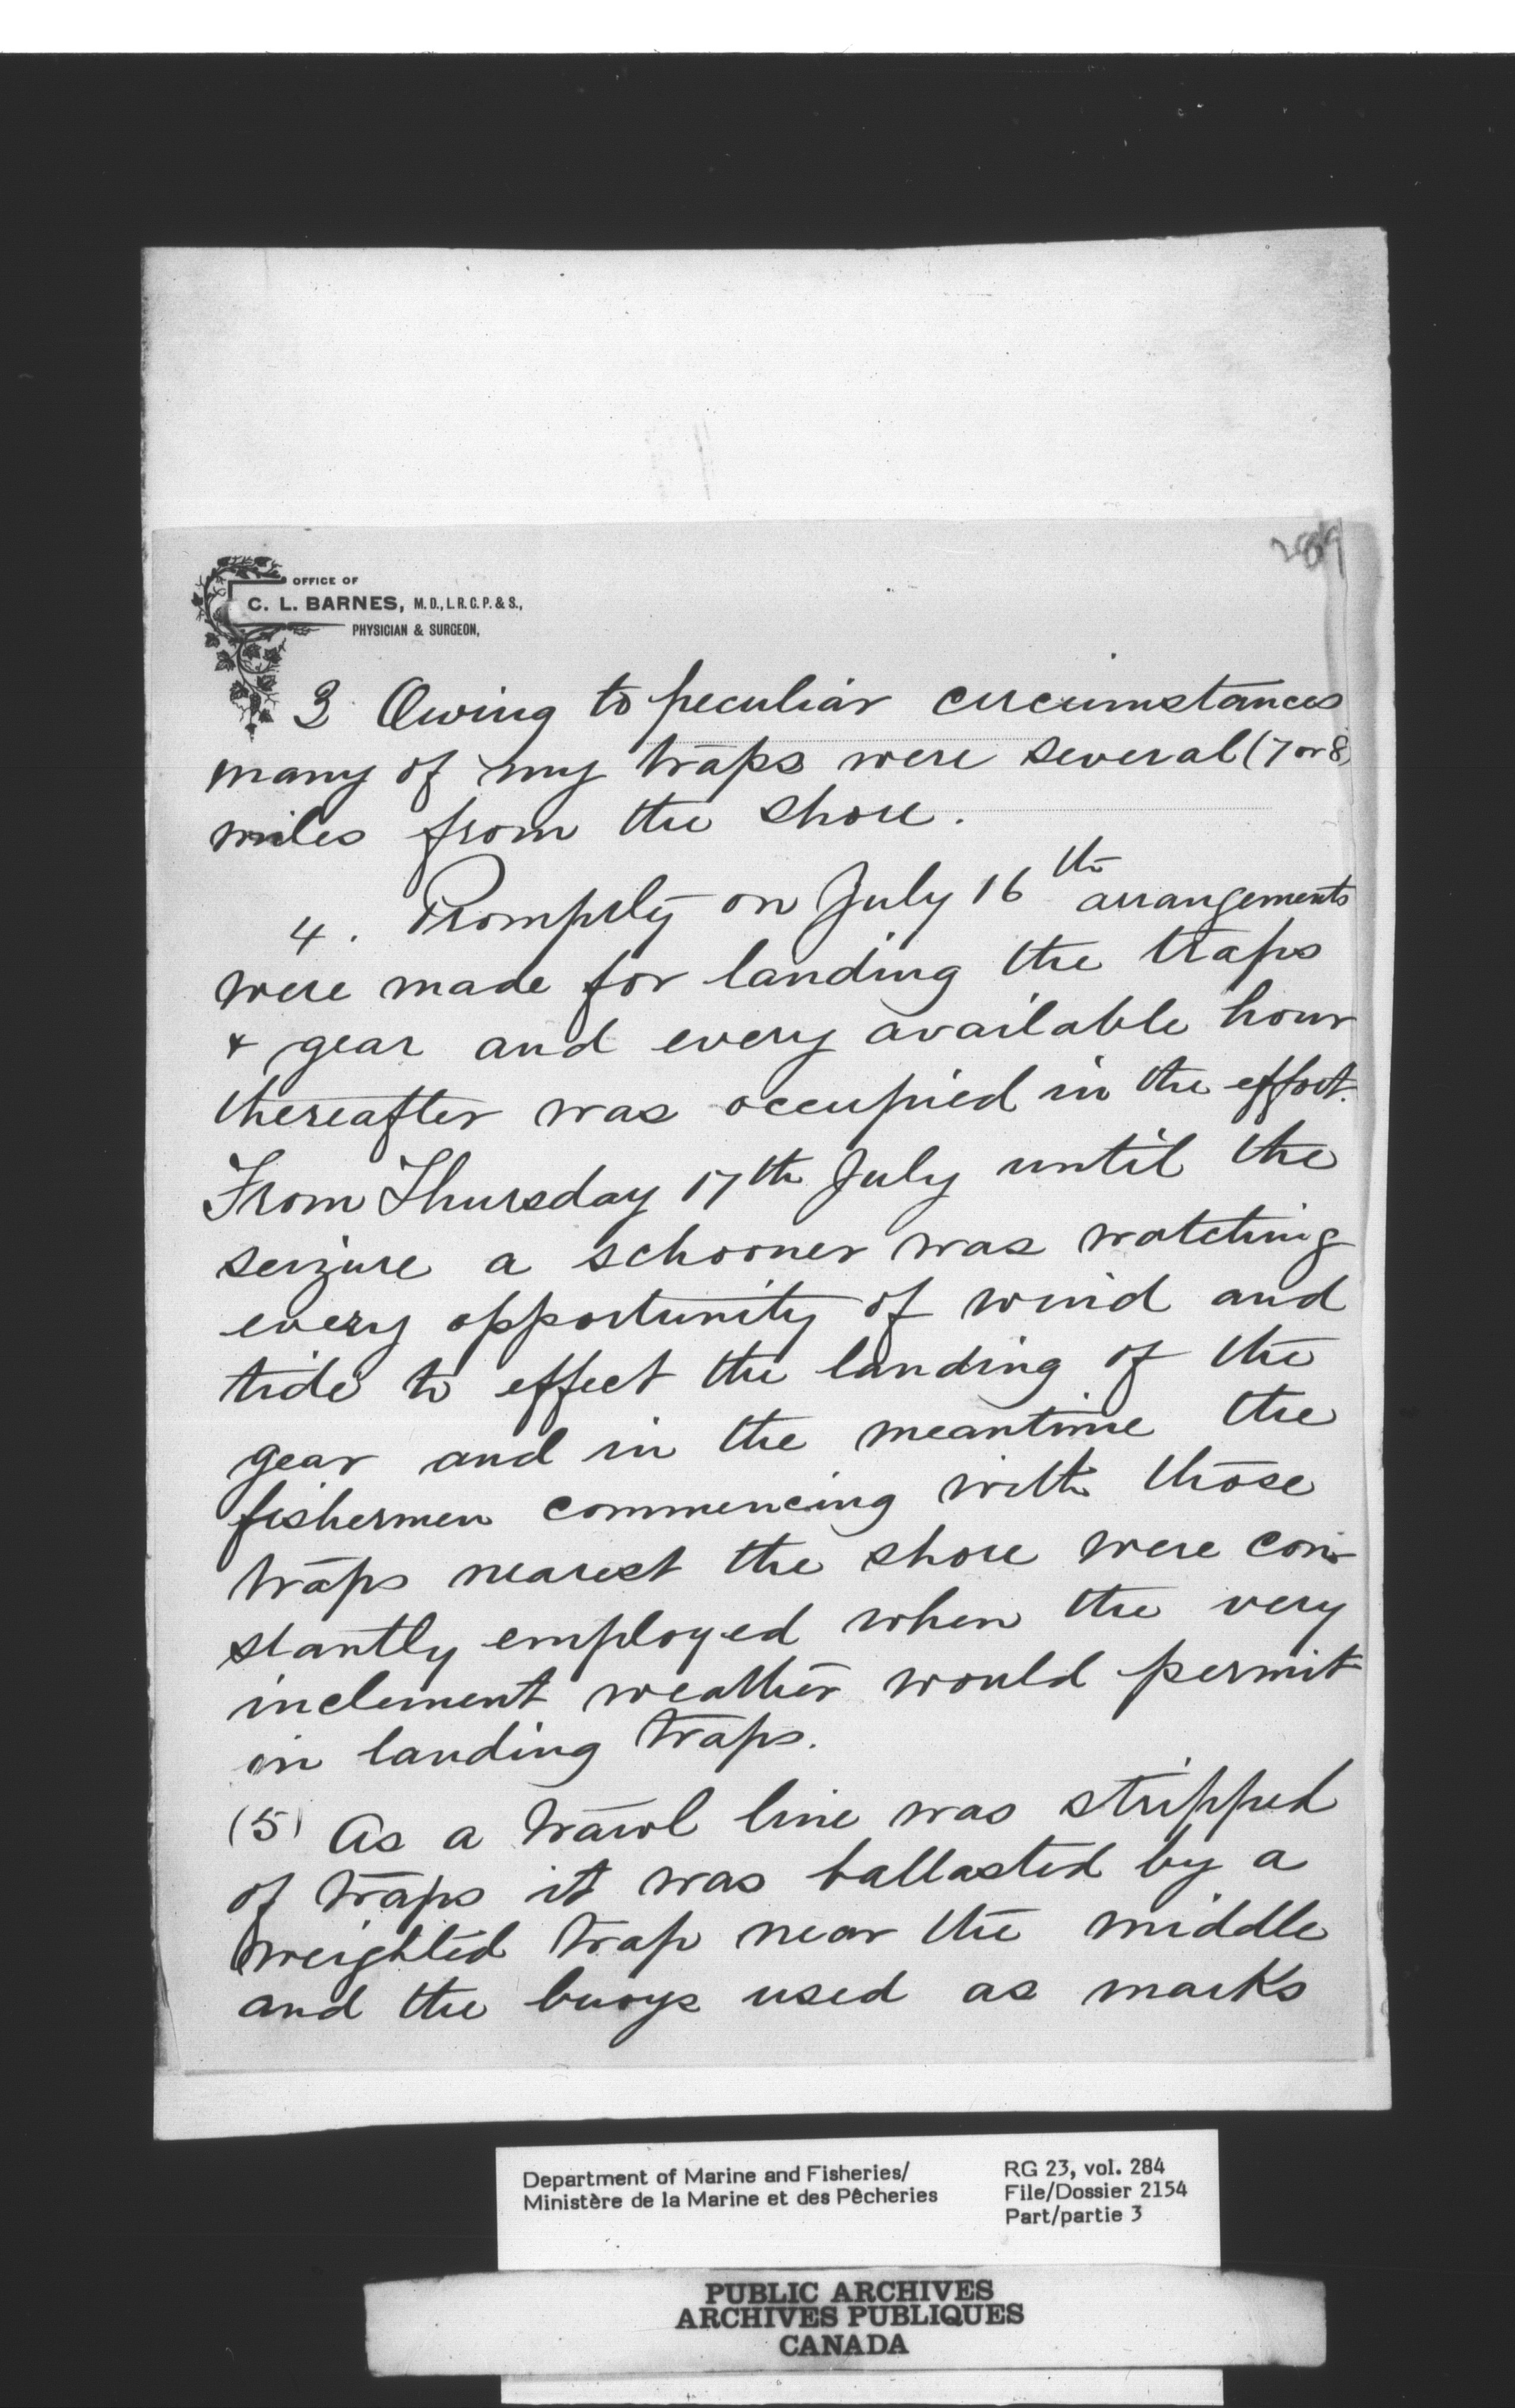 289
OFFICE OF
C. L. BARNES, M.D., L.R.C.P. & S.,
PHYSICIAN & SURGEON,
3 Owing to peculiar circumstances
many of my traps were several (7 or 8)
miles from the shore.
4. Promptly on July 16th arrangements
were made for landing the traps
& gear and every available hour
thereafter was occupied in the effort.
From Thursday 17th July until the
seizure a schooner was watching
every opportunity of wind and
tide to effect the landing of the
gear and in the meantime the
fishermen commencing with those
traps nearest the shore were con-
stantly employed when the very
inclement weather would permit
in landing traps.
(5) As a trawl line was stripped
of traps it was ballasted by a
weighted trap near the middle
and the buoys used as marks
Department of Marine and Fisheries/
Ministère de la Marine et des Pêcheries
RG 23, vol. 284
File/Dossier 2154
Part/partie 3
PUBLIC ARCHIVES
ARCHIVES PUBLIQUES
CANADA